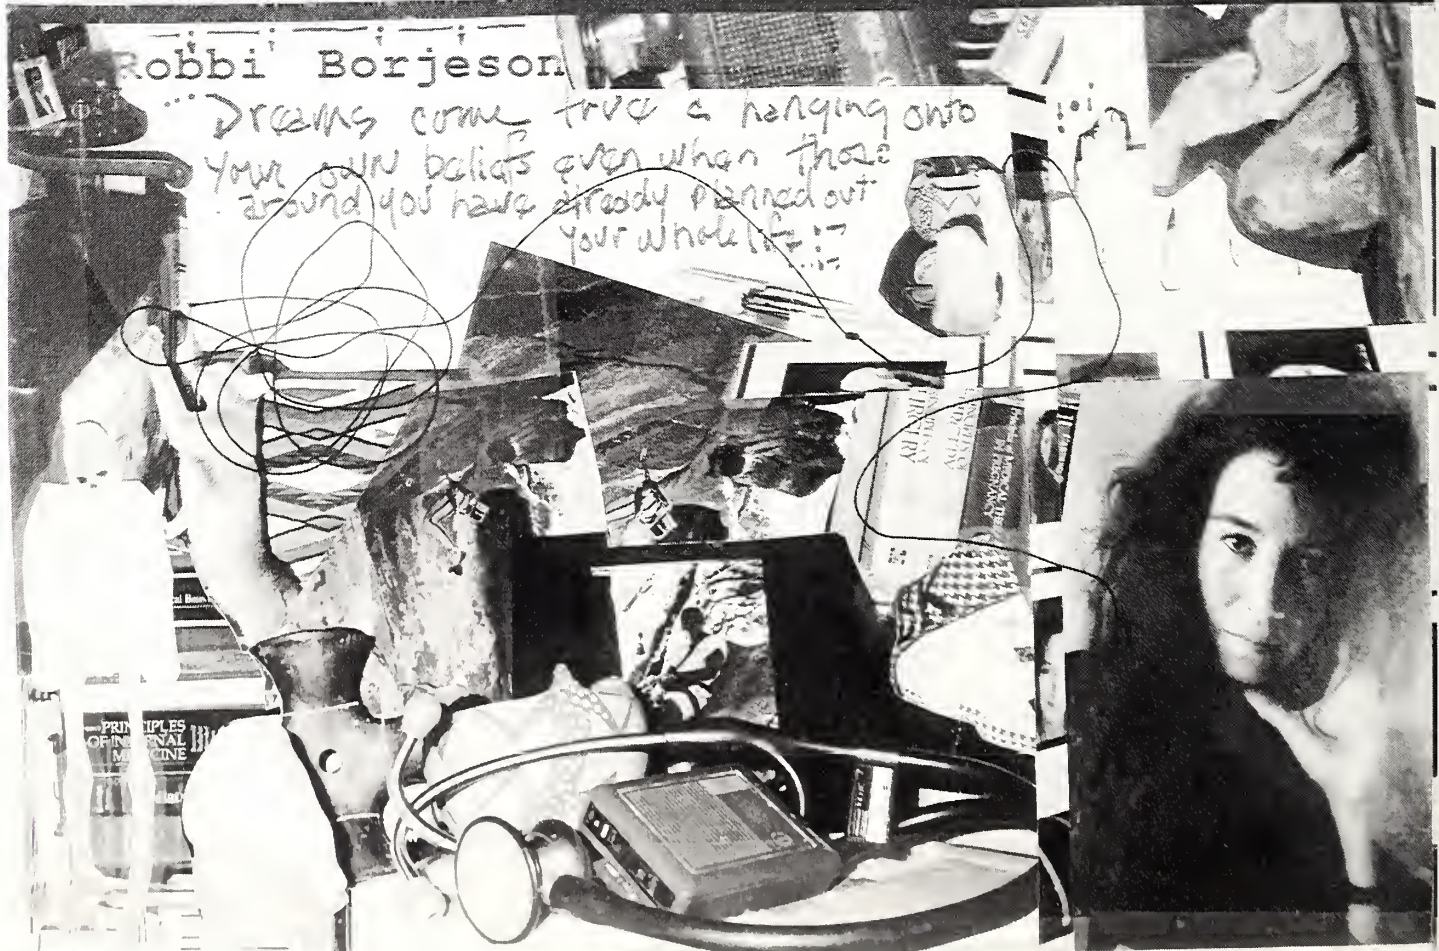 Robbi Borjeson
... Dreams come true & hanging onto
your own beliefs even when those
around you have already planned out
your whole life
PRINCIPLES
OF INTERNAL
MEDICINE
PREGNANCY